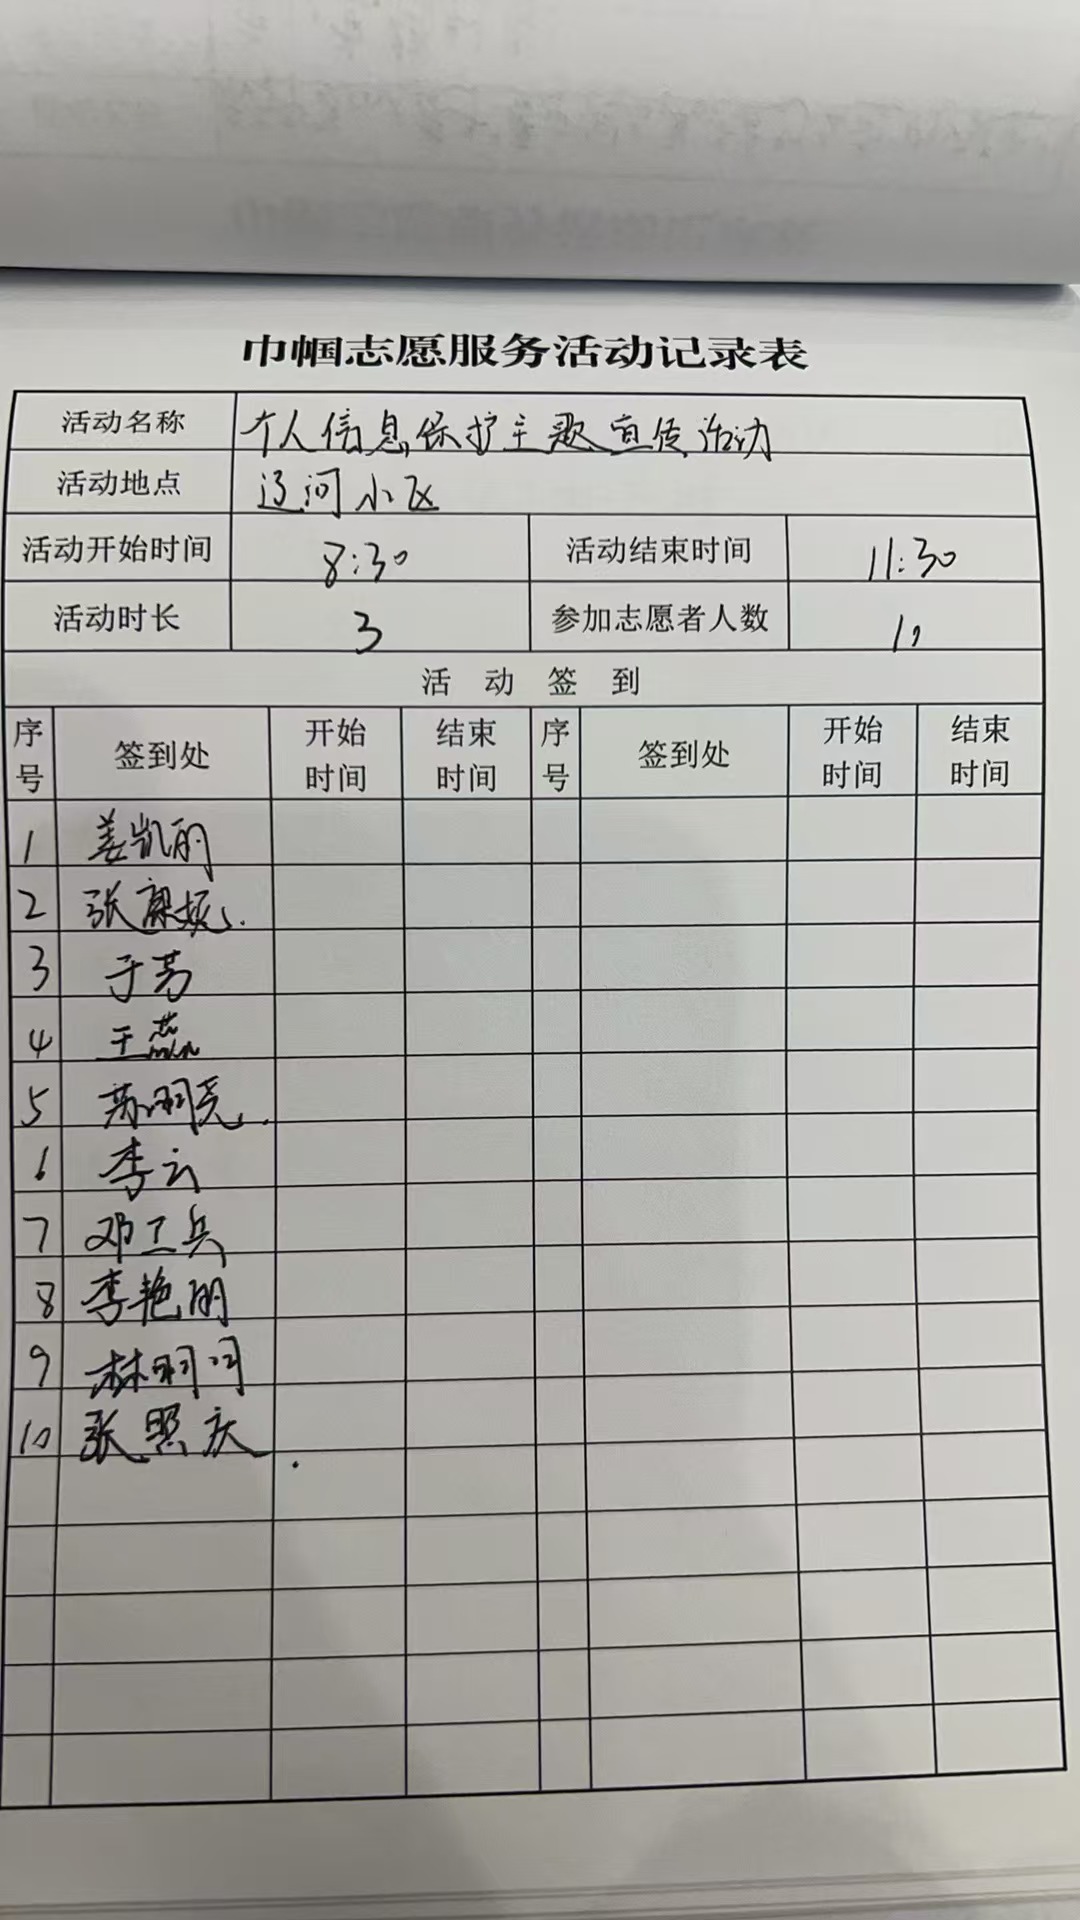 巾帼志愿服务活动记录表
活动名称 个人信息保护主题宣传活动
活动地点 辽河小区
活动开始时间 8:30 活动结束时间 11:30
活动时长 3 参加志愿者人数 10
活 动 签 到
序号 签到处 开始时间 结束时间 序号 签到处 开始时间 结束时间
1 姜凯丽
2 张
3 于芳
4 王蕊
5 苏明亮
6 李云
7 邓卫兵
8 李艳丽
9 林明
10 张照庆